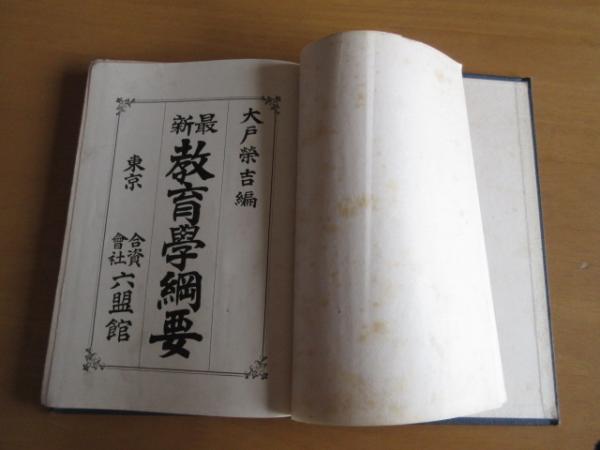 大戸榮吉編
最新
教育學綱要
東京
合資會社
六盟館